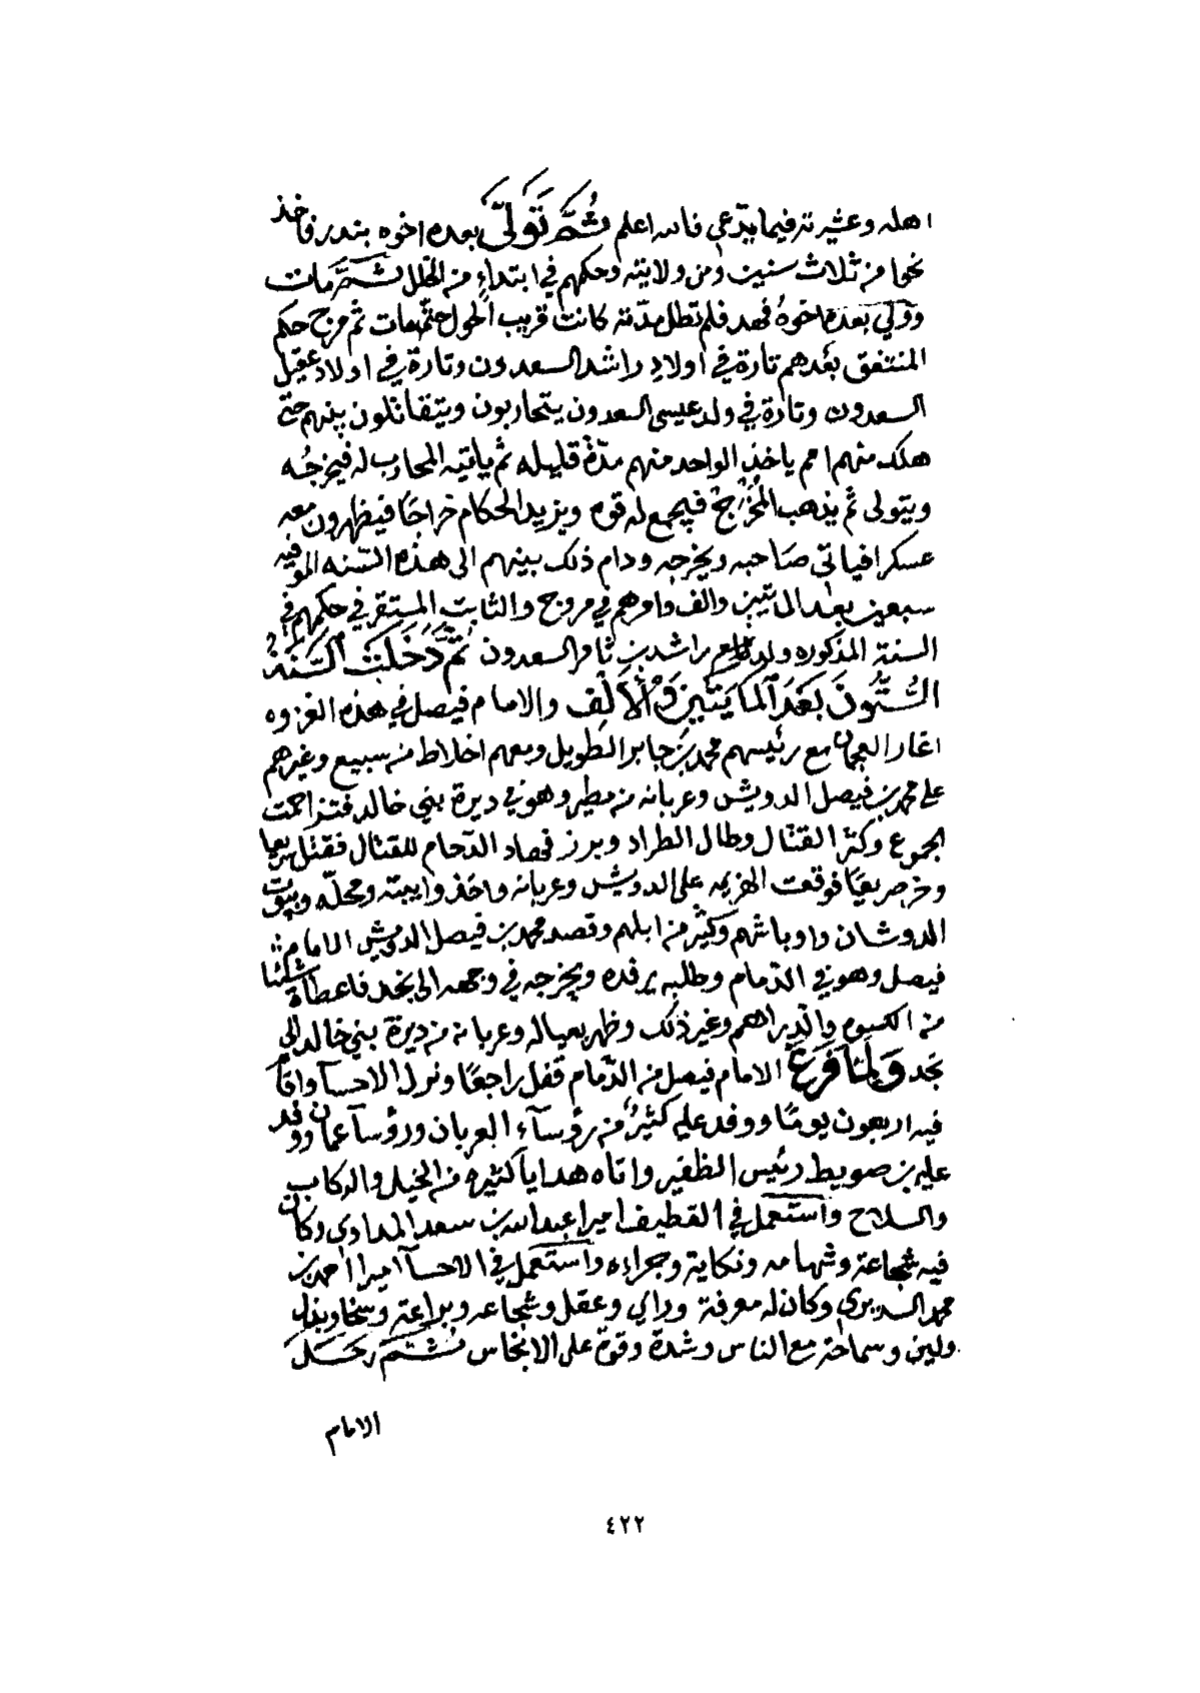 اهله وعشيرته فيما يدّعي فالله اعلم ثُمَّ تَوَلّى بعده اخوه بندر فاخذ
نحوا من ثلاث سنين ومن ولايته وحكمهم في ابتداءٍ من الخلل ثم مات
وتولى بعده اخوهُ فهد فلم تطل مدّته كانت قريب الحول حتى مات ثم مرج حكم
المنتفق بعدهم تارة في اولاد راشد السعدون وتارة في اولاد عقيل
السعدون وتارة في ولد عيسى السعدون يتحاربون ويتقاتلون بينهم حتى
هلك منهم امم ياخذ الواحد منهم مدّة قليله ثم ياتيه المحارب له فيخرجُه
ويتولى ثم يذهب المُخْرَج فيجمع له قوه ويزيد الحكام خراجًا فيظهرون معه
عسكرا فياتي صاحبه ويخرجه ودام ذلك بينهم الى هذه السّنه الموفيه
سبعين بعد المائتين والف وامرهم في مروج والثابت المستقر في حكمهم في
السنة المذكوره ولد راشد بن ثامر السعدون ثُمَّ دَخَلَتْ السَّنَةُ
السِّتُّونَ بَعْدَ الْمَايَتَيْنِ وَالْأَلِف والامام فيصل في هذه الغزوه
اغار العجمان مع رئيسهم محمد بن جابر الطويل ومعهم اخلاط من سبيع وغيرهم
على محمد بن فيصل الدويش وعربانه من مطير وهو في ديرة بني خالد فتزاحمت
الجموع وكثر القتال وطال الطراد وبرز فيصاد الدحام للقتال فقتل
وخر صريعًا فوقعت الهزيمه على الدويش وعربانه واخذوا ابيته ومحلّه وبيوت
الدوشان واوباشهم وكثير من ابلهم وقصد محمد بن فيصل الدويش الامام
فيصل وهو في الدمام وطلبه يرفده ويخرجه في وجهه الى نجد فاعطاه شيئًا
من الكسوه والدراهم وغير ذلك وظهر بعياله وعربانه من ديرة بني خالد الى
نجد وَلَمَّا فَرَغَ الامام فيصل من الدّمام قفل راجعًا ونزل الاحساء واقام
فيه اربعون يومًا ووفد عليه كثيرٌ من رؤساء العربان ورؤساء عمان ووفد
عليه بن صويط رئيس الظفير واتاه هدايا كثيره من الخيل والركاب
والسلاح واستعمل في القطيف اميرا عبدالله بن سعد المداوي وكان
فيه شجاعة وشهامه ونكاية وجراءه واستعمل في الاحساء اميرا احمد بن
محمد السديري وكان له معرفة وراي وعقل وشجاعه وبراعة وسخا وبذل
ولين وسماحة مع الناس وشدة وقوة على الانجاس ثُمَّ رَحَلَ
الامام
٤٢٢